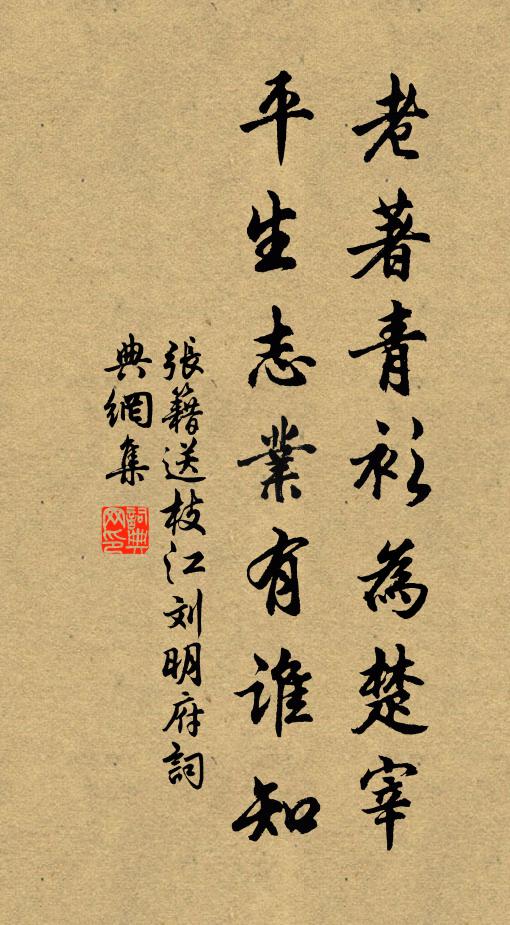 老著青衫為楚宰
平生志業有誰知
張籍送枝江刘明府詞
典網集
詞典网印